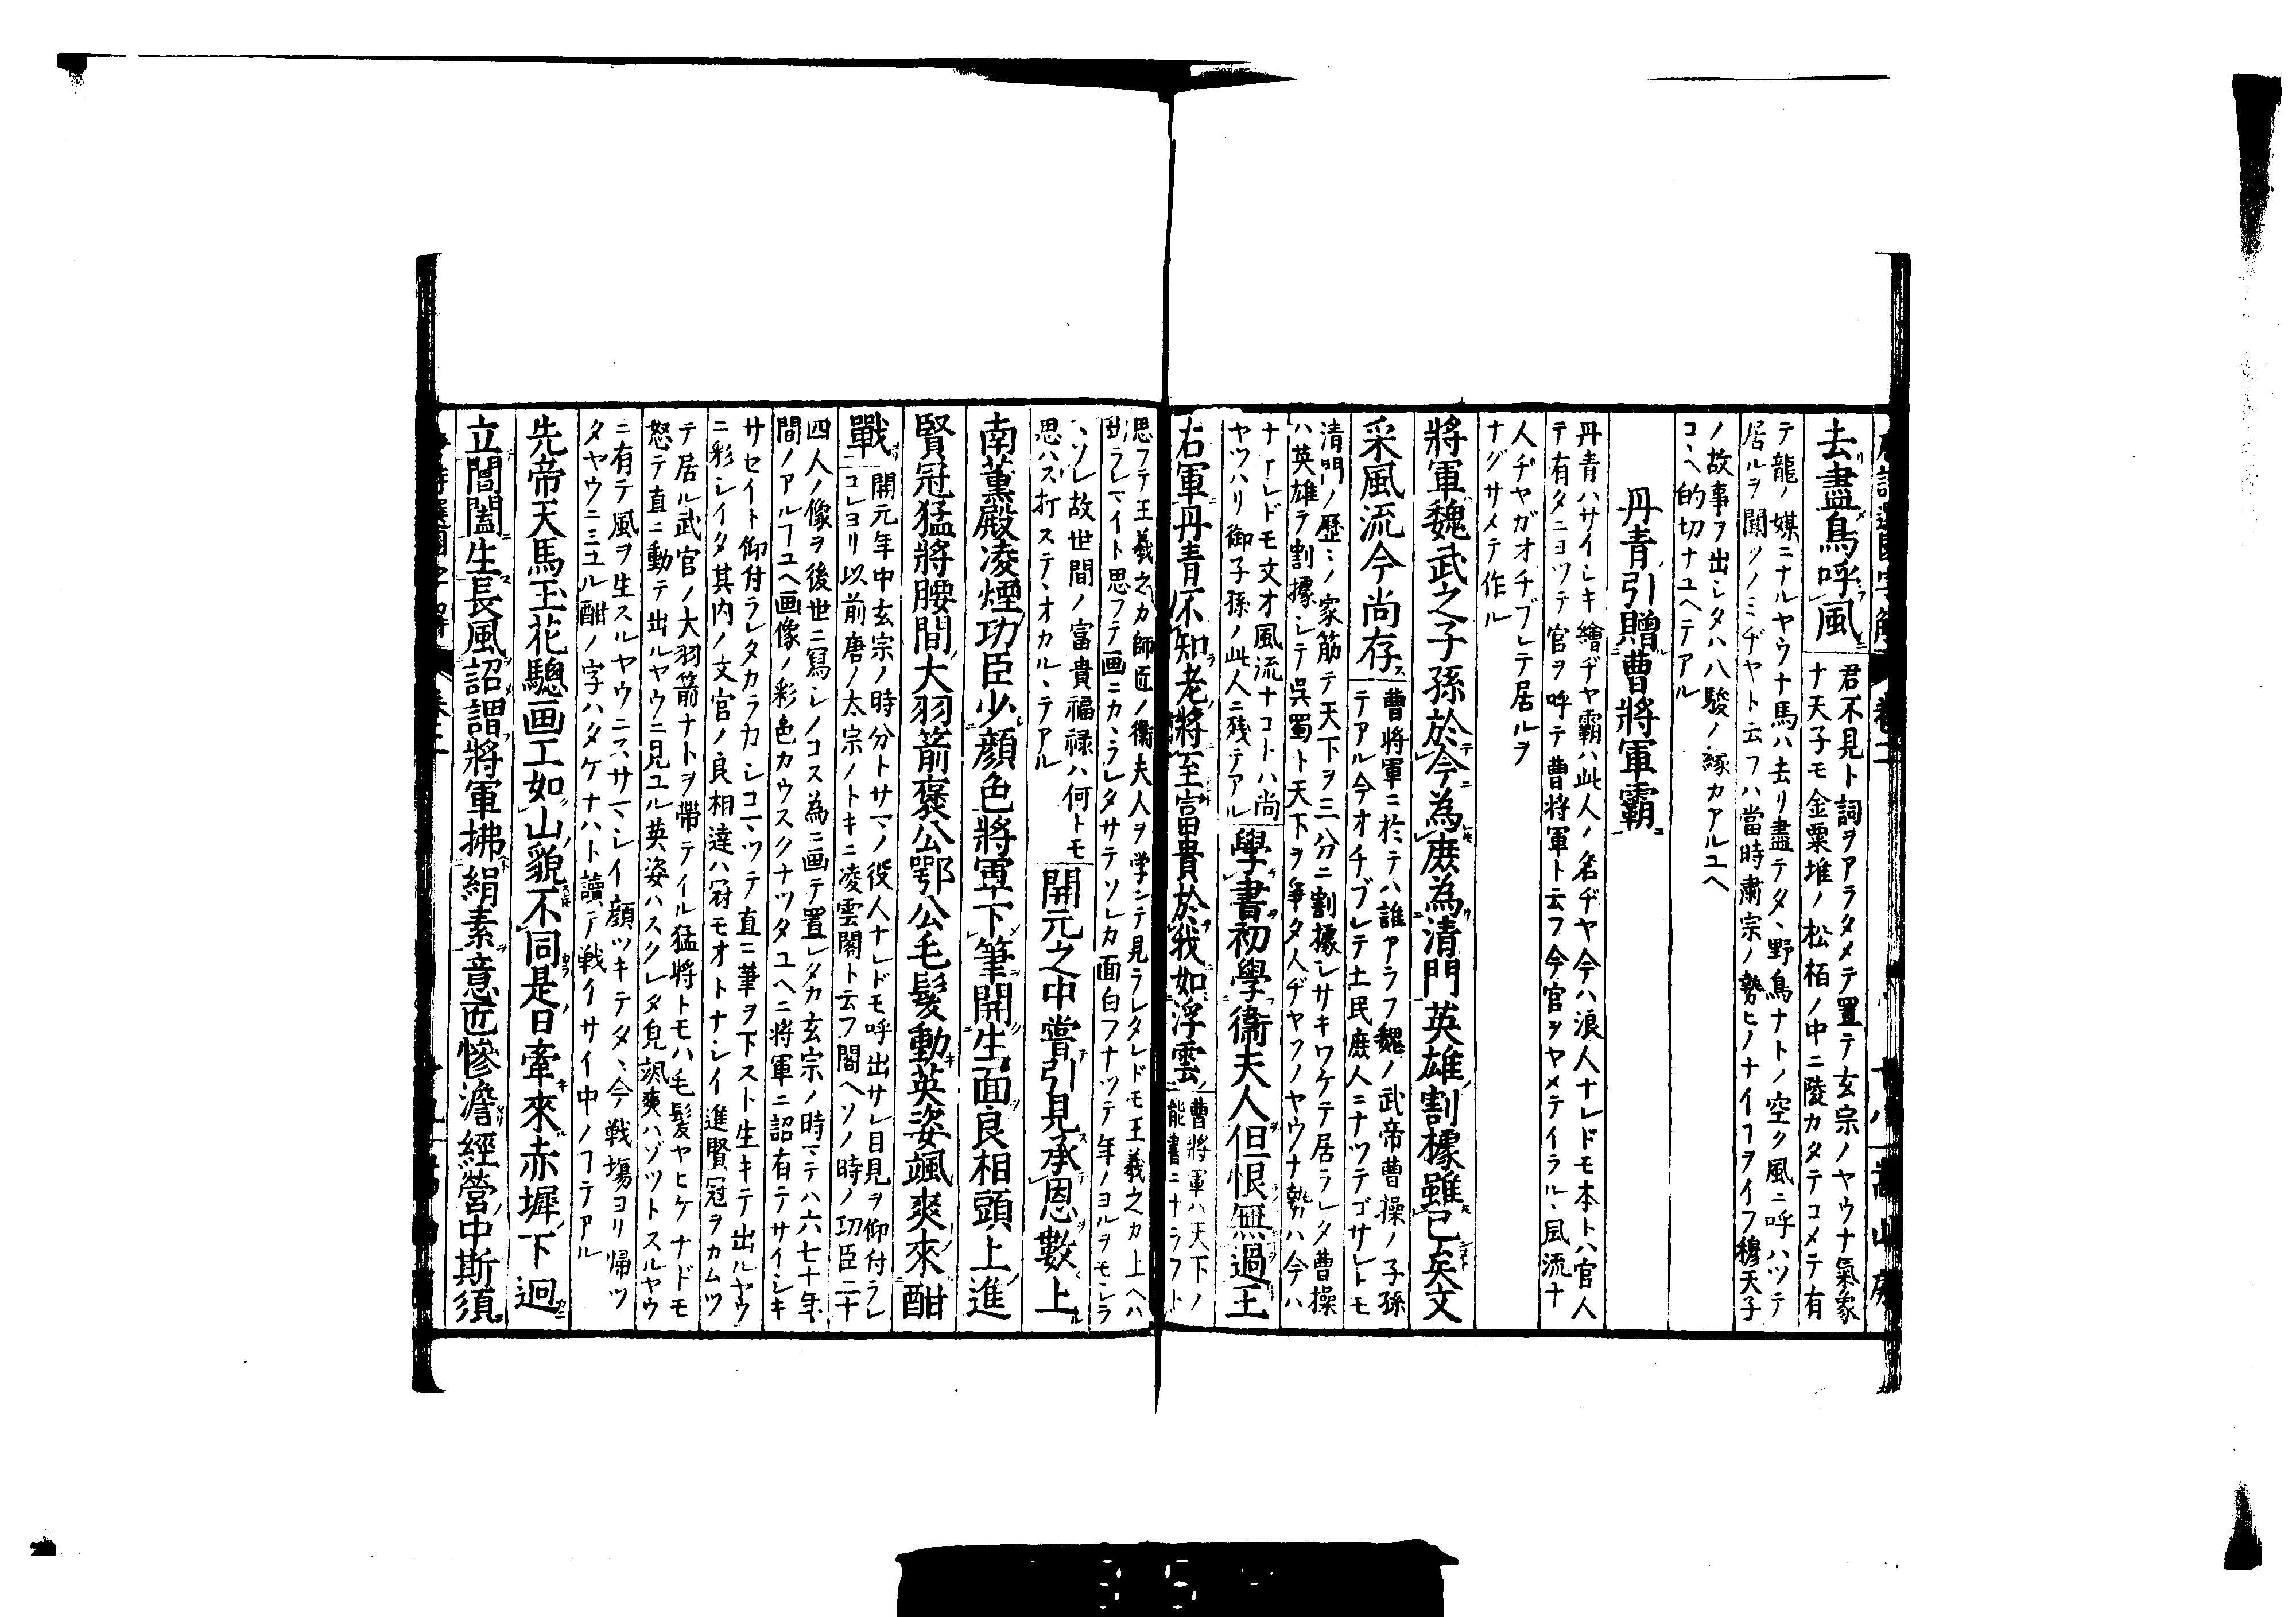 唐詩選國字解 卷二 十八 嵩山房
去盡鳥呼風 君不見ト詞ヲアラタメテ置テ玄宗ノヤウナ氣象
ナ天子モ金粟堆ノ松栢ノ中ニ陵カタテコメテ有
テ龍ノ媒ニナルヤウナ馬ハ去リ盡テタヽ野鳥ナトノ空ク風ニ呼ハツテ
居ルヲ聞クノミヂヤト云フハ當時肅宗ノ勢ヒノナイヿヲイフ穆天子
ノ故事ヲ出シタハ八駿ノ縁カアルユヘ
コヽヘ的切ナユヘテアル
丹青引贈曹將軍霸
丹青ハサイシキ繪ヂヤ霸ハ此人ノ名ヂヤ今ハ浪人ナレドモ本トハ官人
テ有タニヨツテ官ヲ呼テ曹将軍ト云フ今官ヲヤメテイラルヽ風流ナ
人ヂヤガオチブレテ居ルヲ
ナグサメテ作ル
將軍魏武之子孫於今為庶為清門英雄割據雖已矣文
采風流今尚存 曹将軍ニ於テハ誰アラフ魏ノ武帝曹操ノ子孫
テアル今オチブレテ土民庶人ニナツテゴサレトモ
清門ノ歴々ノ家筋テ天下ヲ三分ニ割據シサキワケテ居ラレタ曹操
ハ英雄テ割據シテ呉蜀ト天下ヲ爭タ人ヂヤソノヤウナ勢ハ今ハ
ナケレドモ文才風流ナコトハ尚
ヤツハリ御子孫ノ此人ニ殘テアル 學書初學衞夫人但恨無過王
右軍丹青不知老將至富貴於我如浮雲 曹將軍ハ天下ノ
能書ニナラフト
思フテ王羲之カ師匠ノ衞夫人ヲ学ンテ見ラレタレドモ王羲之カ上ヘハ
出ラレマイト思フテ画ニカヽラレタサテソレカ面白フナツテ年ノヨルヲモシラ
ヽソレ故世間ノ富貴福禄ハ何トモ
思ハズ打ステヽオカルヽテアル 開元之中嘗引見承恩數上
南薫殿凌煙功臣少顏色將軍下筆開生面良相頭上進
賢冠猛將腰間大羽箭褒公鄂公毛髮動英姿颯爽來酣
戰 開元年中玄宗ノ時分トサマノ役人ナレドモ呼出サレ目見ヲ仰付ラレ
コレヨリ以前唐ノ太宗ノトキニ凌雲閣ト云フ閣ヘソノ時ノ功臣二十
四人ノ像ヲ後世ニ寫シノコス為ニ画テ置レタカ玄宗ノ時マテハ六七十年
間ノアルヿユヘ画像ノ彩色カウスクナツタユヘニ將軍ニ詔有テサイシキ
サセイト仰付ラレタカラカレコマツテ直ニ筆ヲ下スト生キテ出ルヤウ
ニ彩レイタ其内ノ文官ノ良相達ハ冠モオトナシイ進賢冠ヲカムツ
テ居ル武官ノ大羽箭ナトヲ帶テイル猛将トモハ毛髪ヤヒケナドモ
怒テ直ニ動テ出ルヤウニ見ユル英姿ハスクレタ皃颯爽ハゾツトスルヤウ
ニ有テ風ヲ生スルヤウニスサマシイ顔ツキテタヽ今戰塲ヨリ帰ツ
タヤウニミユル酣ノ字ハタケナハト讀テ戦イサイ中ノヿテアル
先帝天馬玉花驄画工如山貌不同是日牽來赤墀下迥
立閶闔生長風詔謂將軍拂絹素意匠慘澹經營中斯須